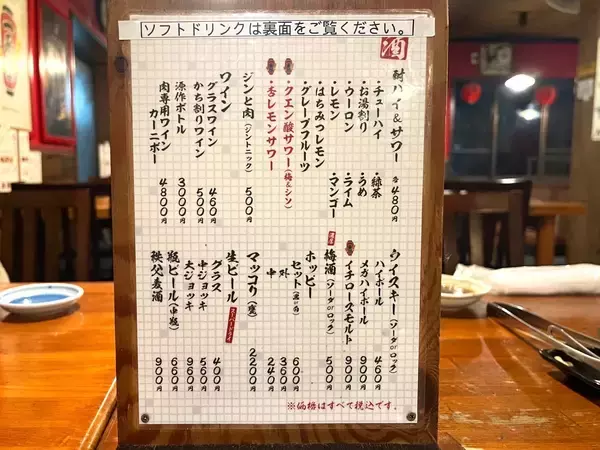 ソフトドリンクは裏面をご覧ください。
酒
酎ハイ&サワー 各480円
・チューハイ ・緑茶
・お湯割り ・うめ
・ウーロン ・ライム
・レモン ・マンゴー
・はちみつレモン
・グレープフルーツ
・クエン酸サワー(梅&シソ)
・杏レモンサワー
ジンと肉(ジントニック) 500円
ワイン
グラスワイン 460円
かち割りワイン 500円
源作ボトル 3000円
肉専用ワイン
カーニボー 4800円
ウイスキー(ソーダorロック)
ハイボール 460円
メガハイボール 900円
イチローズモルト 900円
梅酒(ソーダorロック) 500円
ホッピー
セット(黒or白) 600円
外 360円
中 240円
マッコリ(甕) 2500円
生ビール
スーパードライ
グラス 400円
中ジョッキ 560円
大ジョッキ 960円
瓶ビール(中瓶) 660円
秩父麦酒 900円
※価格はすべて税込です。